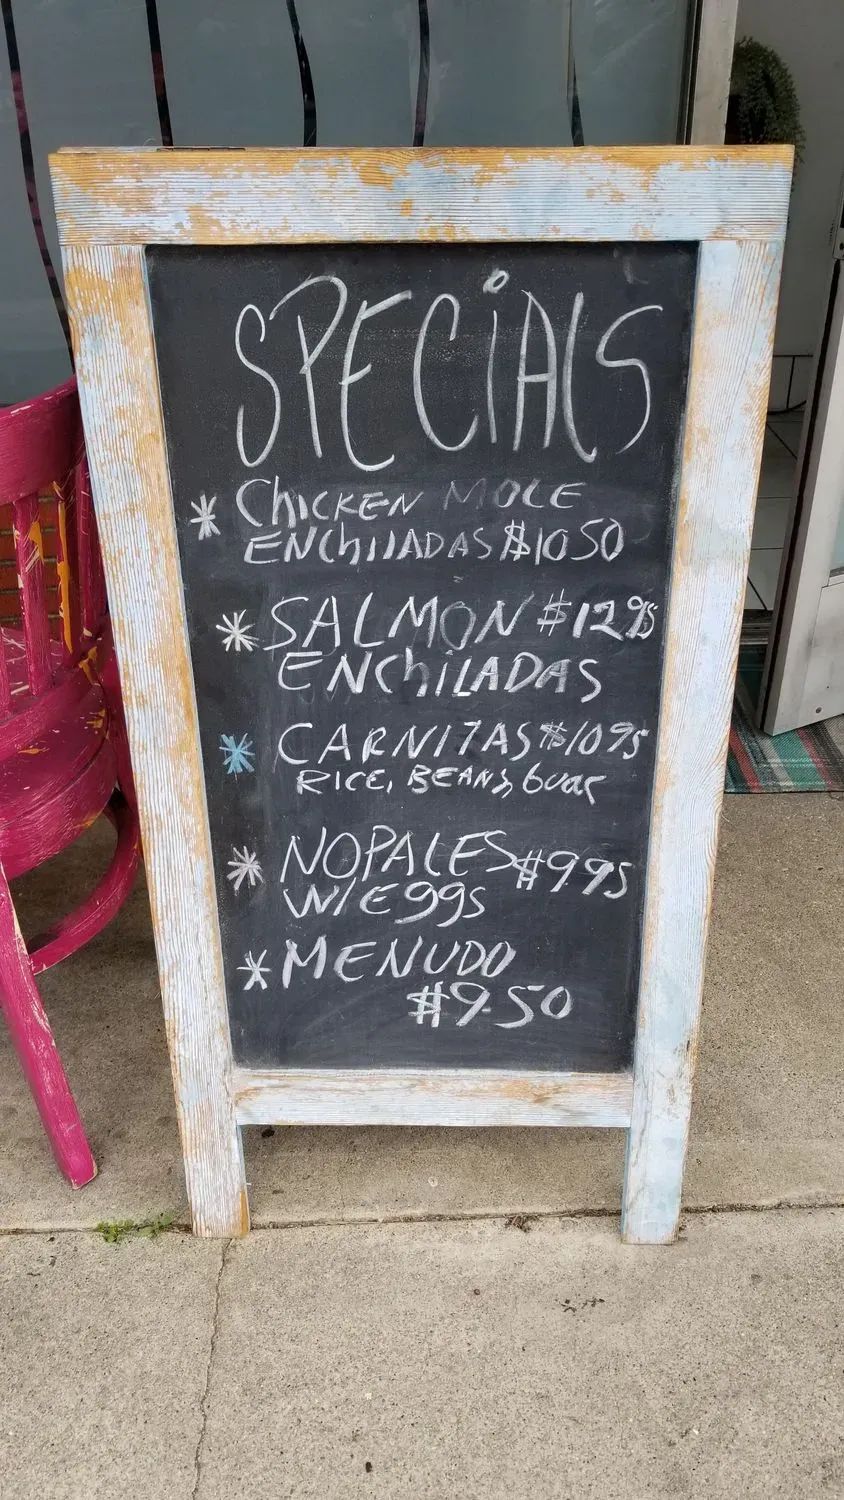 SPECiAlS
* ChICKEN MOLE
ENChIlADAS $10 50
* SALMON $12 95
ENChiLADAS
* CARNITAS $10 95
RICE, BEANS, Guac
* NOPALES $9 95
W/EggS
* MENUDO
$9.50